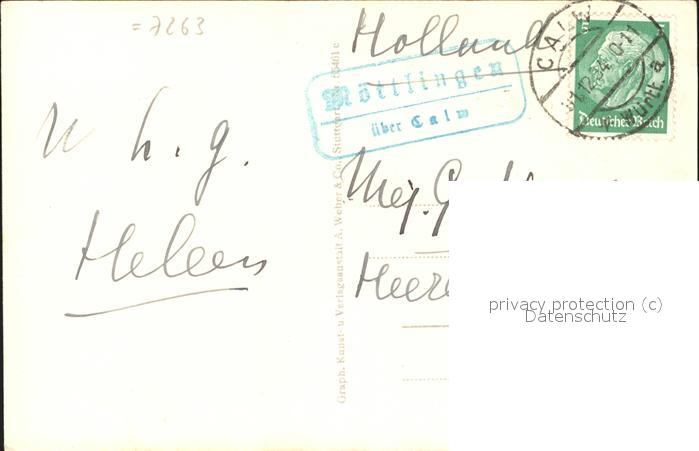 = 7263
Holland
Möttlingen
über Calw
CALW
12.34.10-11
Württ. a
5
Deutsches Reich
u h. g.
Heleen
Mej. G
Heere
Graph. Kunst- u Verlagsanstalt A. Weber & Co. Stuttgart
privacy protection (c)
Datenschutz